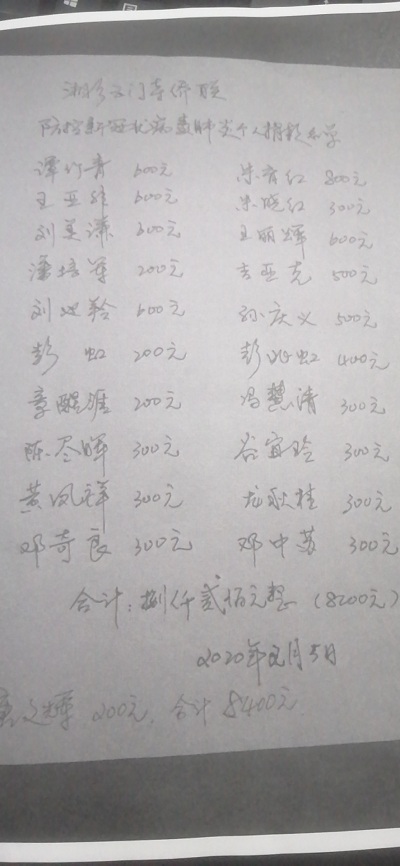 防控新冠状病毒肺炎个人捐款名单
谭竹青 600元 朱育红 800元
王亚维 600元 朱晓红 300元
刘美 600元 王丽辉 600元
潘培 200元 吉亚克 500元
刘 600元 孙庆义 500元
彭虹 200元 彭 虹 400元
章醒 200元 冯慧清 300元
陈 晖 300元 谷宜 300元
黄凤祥 300元 龙秋桂 300元
邓奇良 300元 邓中苏 300元
合计:捌仟贰佰元整(8200元)
2020年2月5日
辉 200元, 合计 8400元